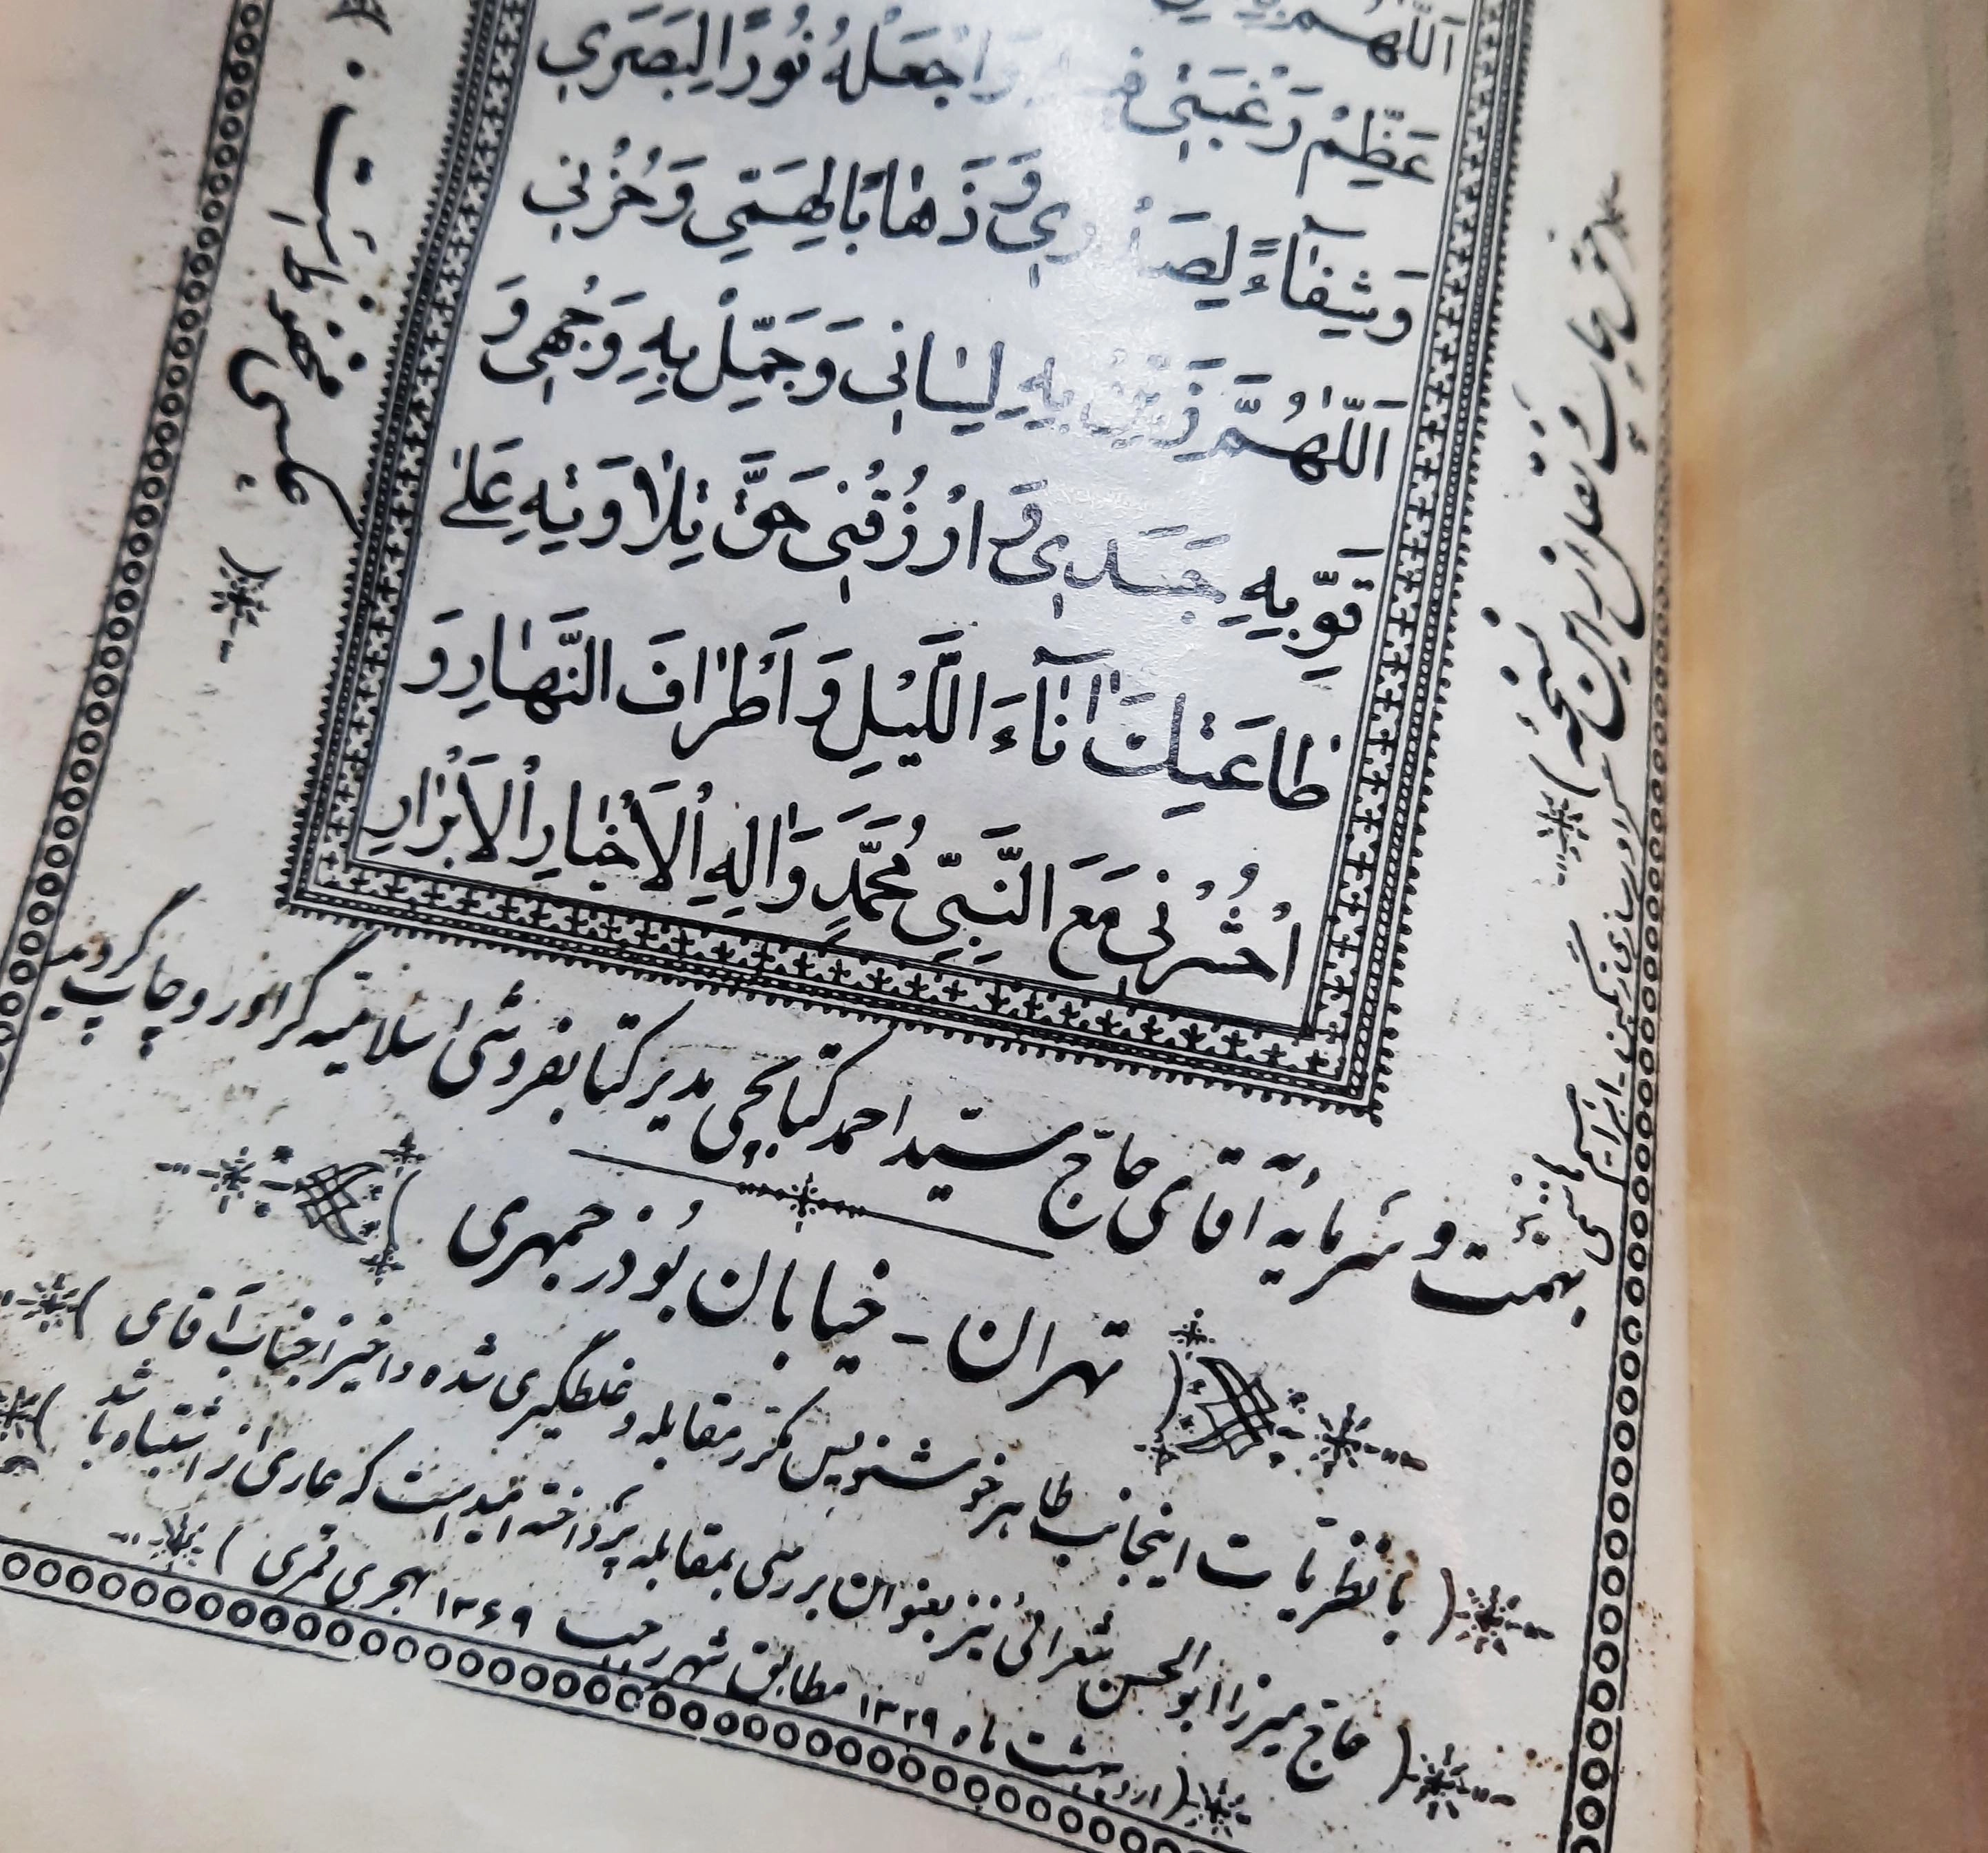 اَللّٰهُمَّ
عَظِّمْ رَغْبَتِي فِيهِ وَاجْعَلْهُ نُورًا لِبَصَرِي
وَشِفَآءً لِصَدْرِي وَ ذَهَابًا لِهَمِّي وَ حُزْنِي
اَللّٰهُمَّ زَيِّنْ بِهِ لِسَانِي وَ جَمِّلْ بِهِ وَجْهِي وَ
قَوِّ بِهِ جَسَدِي وَ ارْزُقْنِي حَقَّ تِلَاوَتِهِ عَلَىٰ
طَاعَتِكَ اٰنَآءَ اللَّيْلِ وَ أَطْرَافَ النَّهَارِ وَ
احْشُرْنِي مَعَ النَّبِيِّ مُحَمَّدٍ وَ اٰلِهِ الْاَخْيَارِ الْاَبْرَارِ
حق چاپ و تقلید از این نسخه
گراورسازی رنگین - ابراهیم هاشمی
بهمّت و سَرمایۀ آقای حاج سیّد احمد کتابچی مدیر کتابفروشی اسلامیّه گراور و چاپ گردید
تهران - خیابان بُوذرجمهری
( با نظریّات اینجانب طاهر خوشنویس مکرّر مقابله و غلطگیری شده و اخیراً جناب آقای )
( حاج میرزا ابوالحسن شعرانی نیز بعنوان بررسی بمقابله پرداخته امید است که عاری از اشتباه باشد )
( اردیبهشت ماه ۱۳۲۹ مطابق شهر رجب ۱۳۶۹ هجری قمری )